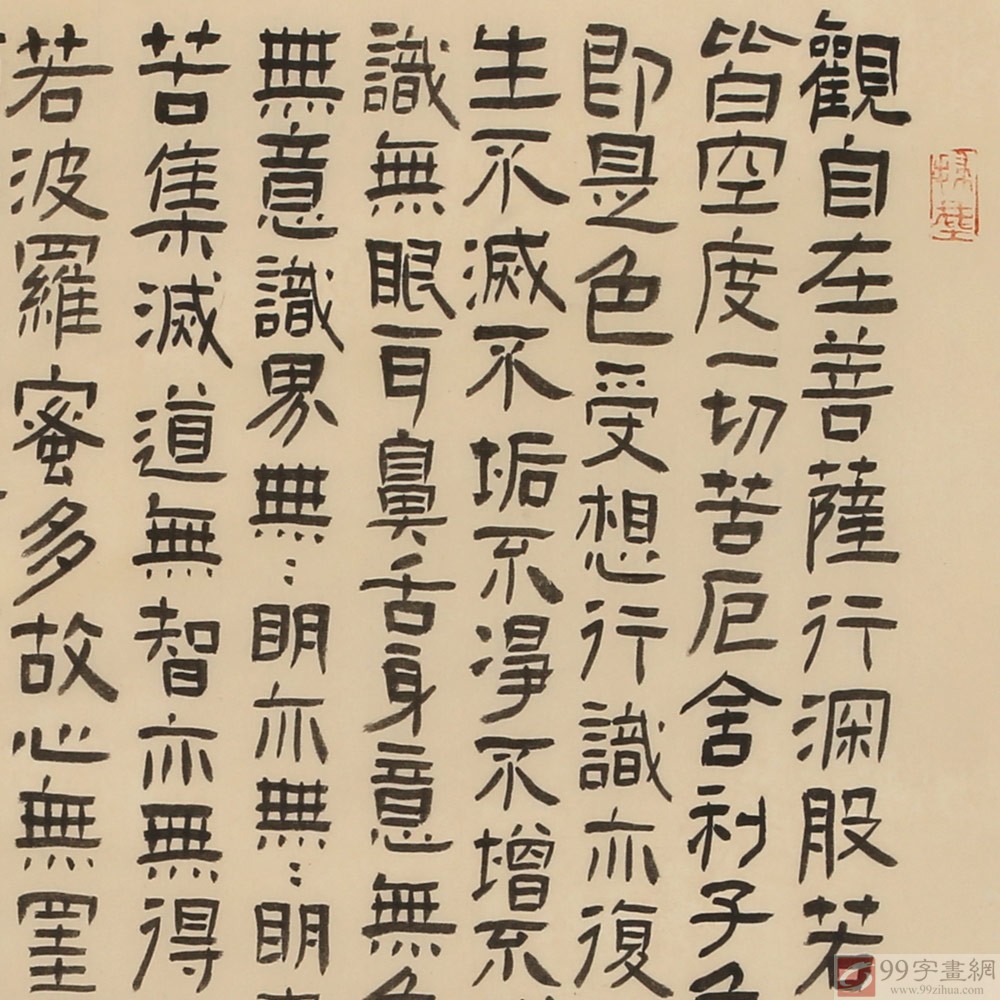 觀自在菩薩行深般若
皆空度一切苦厄舍利子
即是色受想行識亦復
生不滅不垢不淨不增不
識無眼耳鼻舌身意無
無意識界無:明亦無:明
苦集滅道無智亦無得
若波羅蜜多故心無罣
99字畫網
www.99zihua.com